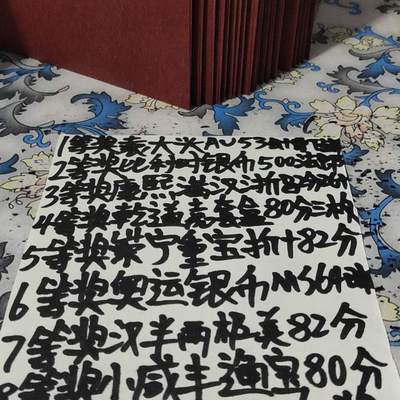 1等奖袁大头AU53
2等奖比利时银币500法郎
3等奖康熙满汉浙82分
4等奖乾道元宝 80分
5等奖崇宁重宝折十82分
6等奖奥运银币MS69
7等奖汉半两极美82分
8等奖小咸丰通宝80分